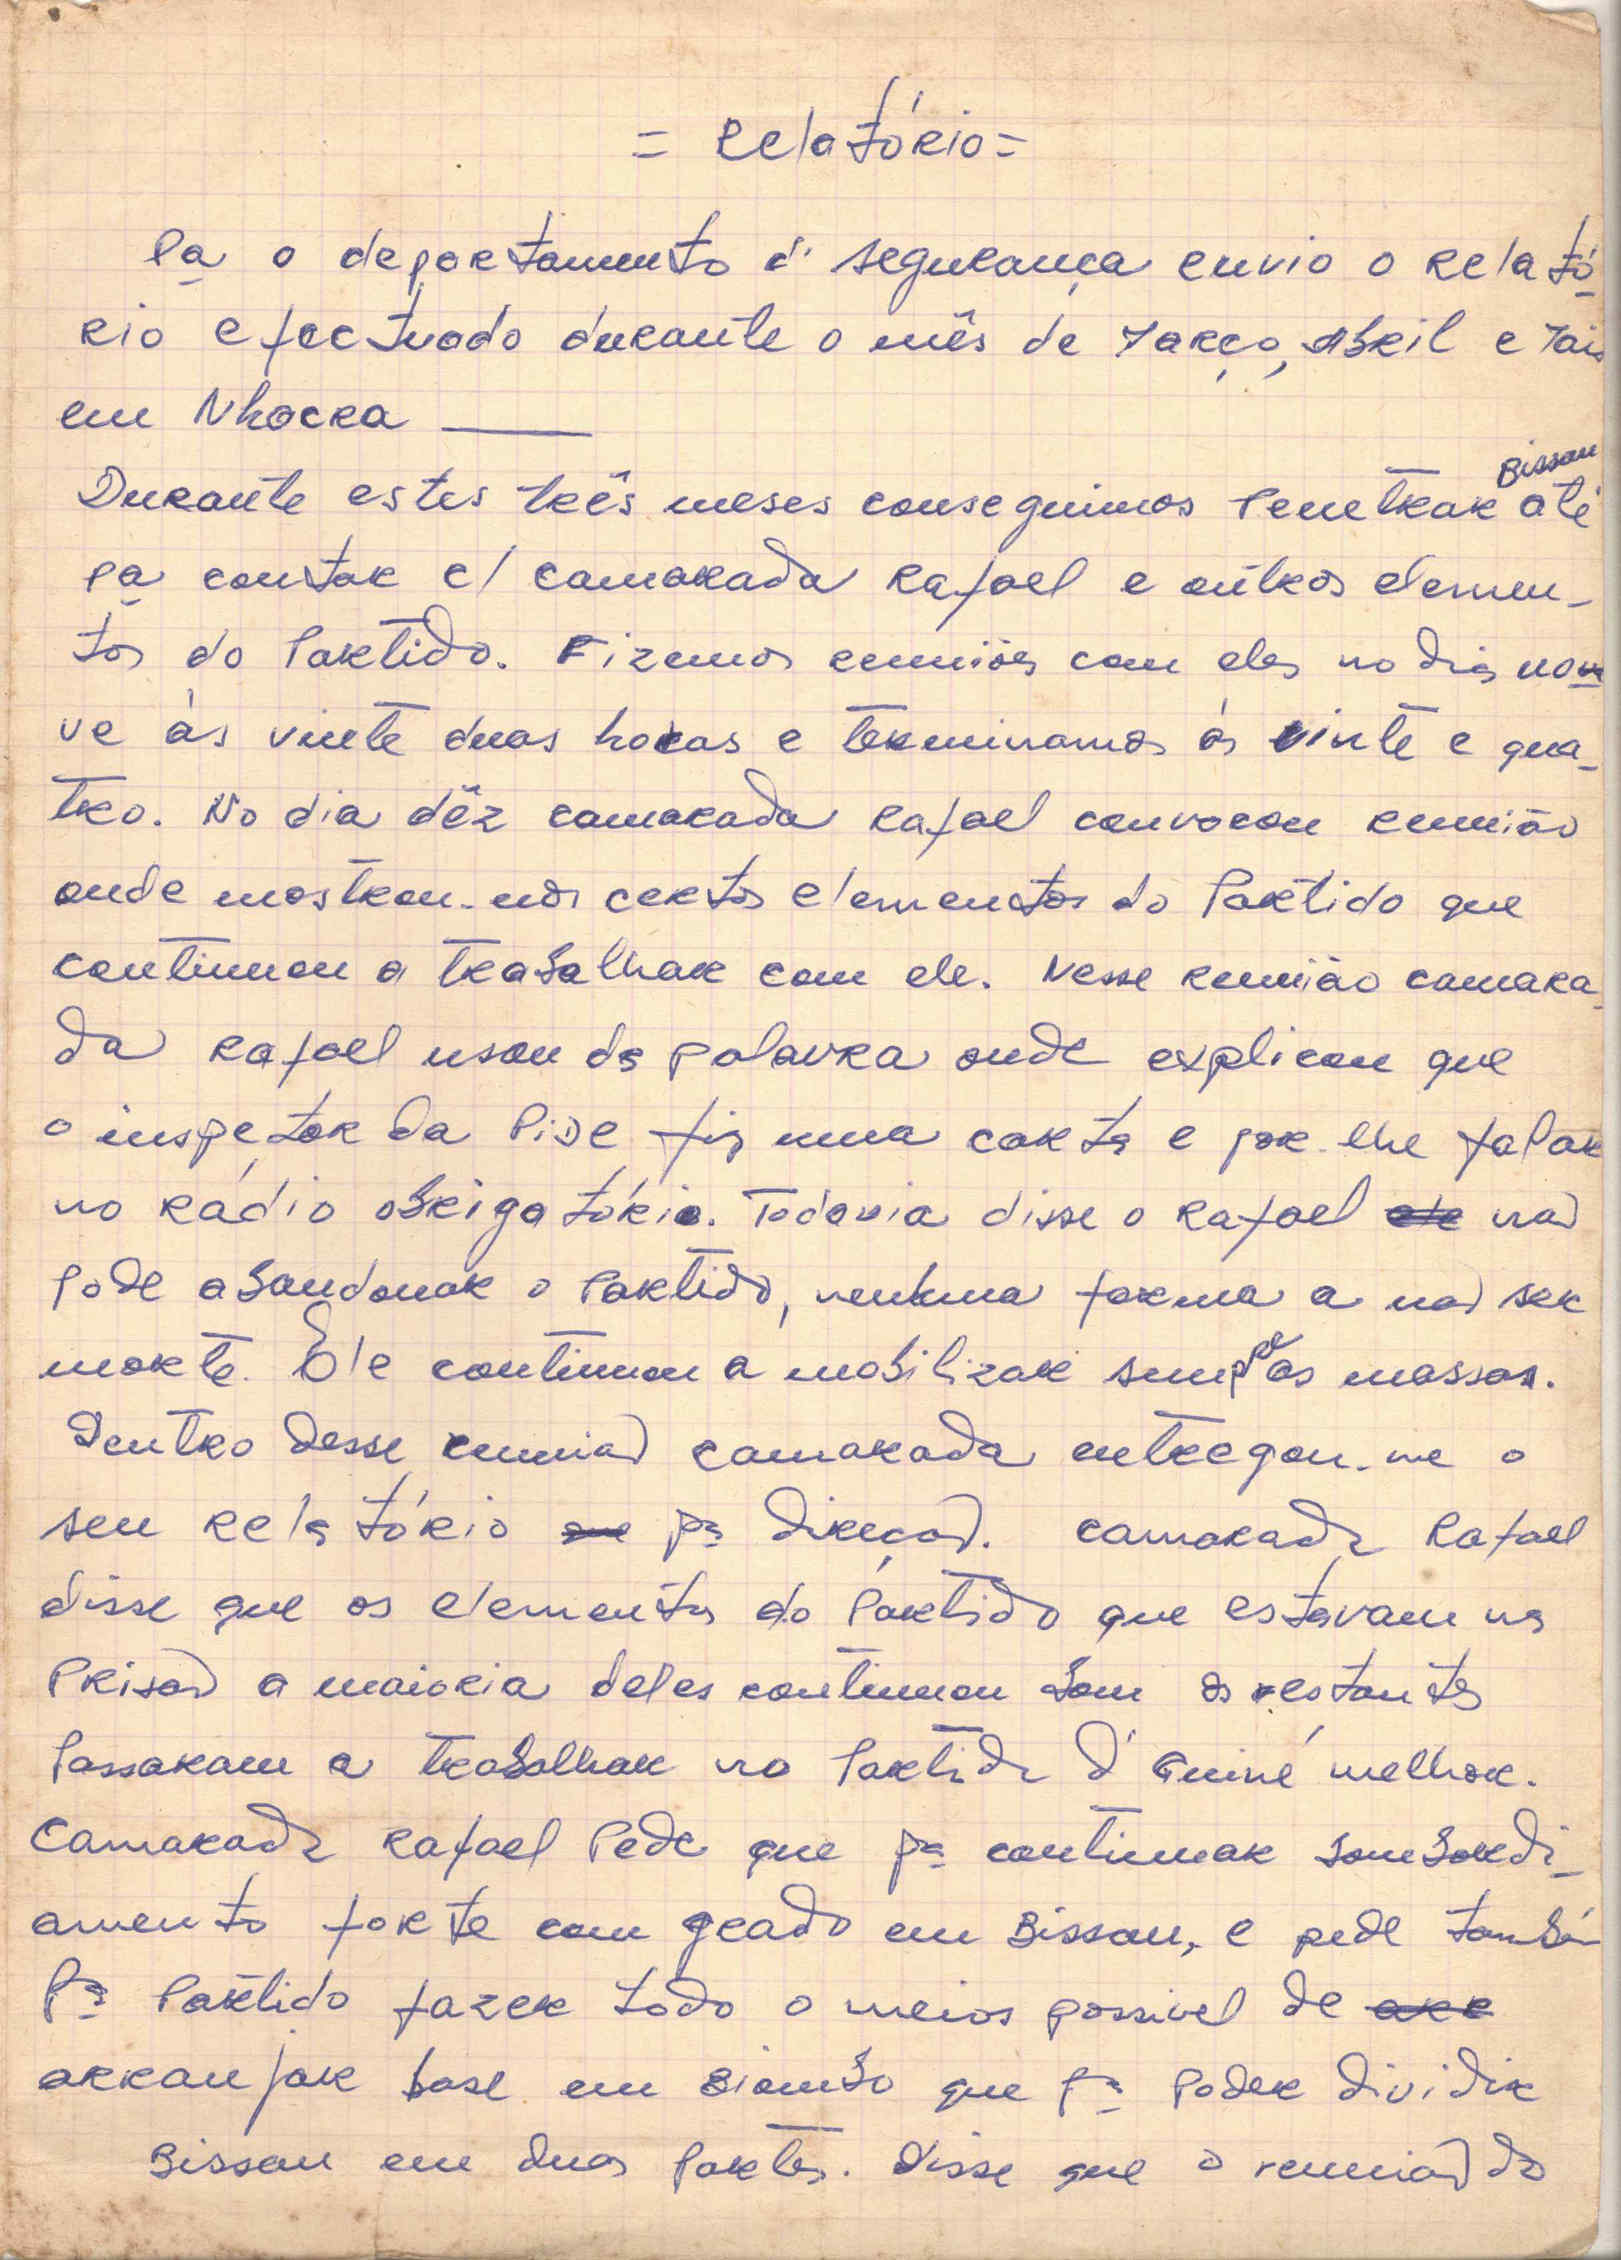 = Relatório =
Pa o departamento d' segurança envio o relató-
rio efectuado durante o mês de Março, Abril e Maio
em Nhacra ———
Bissau
Durante estes três meses conseguimos Penetrar até
pa contar c/ camarada Rafael e outros elemen-
tos do Partido. Fizemos reuniões com eles no dia no-
ve às vinte duas horas e terminamos ás vinte e qua-
tro. No dia dêz camarada Rafael convocou reunião
onde mostrou-nos certos elementos do Partido que
continuou a trabalhar com ele. Nesse reunião camara-
da Rafael usou da palavra onde explicou que
o inspector da Pide fiz uma carta e por-lhe falar
no rádio obrigatório. Todavia disse o Rafael ele não
Pode abandonar o Partido, nenhuma forma a não ser
morte. Ele continuou a mobilizar sempre as massas.
Dentro desse reunião camarada entregou-me o
seu relatório pa direção. Camarada Rafael
disse que os elementos do Partido que estavam na
Prisão a maioria deles continuou bom os restantes
Passaram a trabalhar no Partido d' Guiné melhor.
Camarada Rafael Pede que pa continuar bombardi-
amento forte com grado em Bissau, e pede também
Pa Partido fazer todo o meios possivel de
arranjar base em Biombo que pa Poder dividir
Bissau em duas Partes. Disse que o reunião do